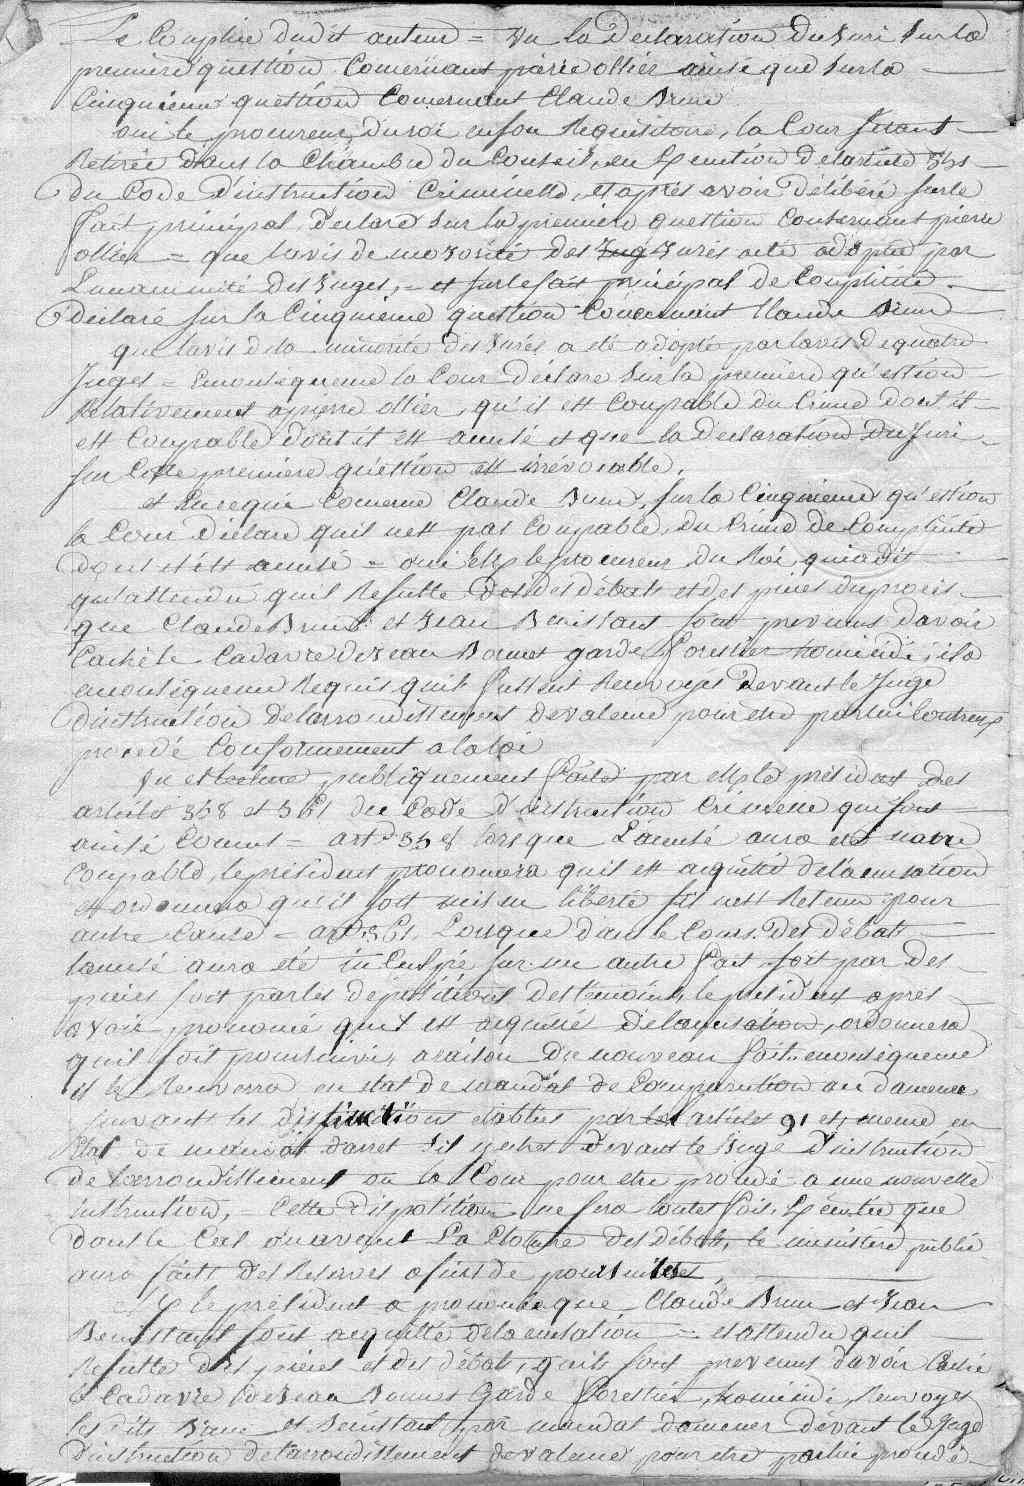 Le Complice dudit auteur = Vu la Declaration du Juri Sur la
premiere question Concernant pierre ollier ainsi que Sur la
Cinquieme question Concernant Claude Brun
oui le procureur du roi en son Requisitoire, la Cour s'etant
Retirée dans la Chambre du Conseil, en Execution de l'article 351
du Code d'instruction Criminelle, et après avoir délibéré sur le
fait principal, declare sur la premiere question Concernant pierre
ollier = que lavis de majorité des Jug Jurés a eté adopté par
Lunanimité des Juges, = et sur le fait principal de Complicité
déclare sur la Cinquieme question Concernant Claude Brun
que lavis de la minorité des Jurés a été adopté par lavis de quatre
Juges = En consequence la Cour déclare Sur la premiere question
Relativement a pierre ollier, qu'il est Coupable du Crime dont il
est Coupable dont il est accusé et que la Declaration du Juri
sur Cette premiere question est irrévocable,
et En ce qui Concerne Claude Brun, sur la Cinquieme question
la Cour déclare quil nest pas Coupable, du Crime de Complicité
dont il est accusé = oui le procureur du Roi qui a dit
qu'attendu qu'il Resulte des debats et des pieces du procès
que Claude Brun et Jean Benistant sont prevenus davoir
Caché le Cadavre de Jean Bonnet garde forestier homicidé, il a
en consequence Requis quils fussent Renvoyés devant le Juge
d'instruction de larrondissement de valence pour etre par lui Contre eux
procedé Conformement a la loi
Vu et lecture publiquement faite par le président des
articles 358 et 361 du Code d'instruction Criminelle qui sont
ainsi Concus = art. 358 lorsque L'accusé aura été non
Coupable, le président prononcera quil est acquitté de l'accusation
et ordonnera qu'il soit mis en liberté s'il nest Retenu pour
autre Cause = art. 361. Lorsque dans le Cours des débats
l'accusé aura été inculpé sur un autre fait soit par des
pieces soit par les depositions des temoins, le president après
avoir prononcé qu'il est acquitté de l'accusation, ordonnera
qu'il soit poursuivi, a raison du nouveau fait en conséquence
il le Renverra en etat de mandat de Comparution ou damener
Suivant les distinctions etablies par l'article 91 et meme en
Etat de mandat darret S'il y echet devant le Juge d'instruction
de larrondissement ou la Cour pour etre procedé a une nouvelle
instruction, = Cette disposition ne sera toutes fois Executée que
dans le Cas ou avant La Cloture des débats, le ministère public
aura fait des Reserves afins de poursuites,
le président a prononcé que Claude Brun et Jean
Benistant sont acquitté de laccusation = et attendu quil
Resulte des pieces et des débats, qu'ils sont prevenus davoir Caché
le Cadavre de Jean Bonnet Garde forestier, homicidé, Renvoyes
les dits Brun et Benistant par mandat damener devant le Juge
d'instruction de larrondissement de valence pour etre par lui procedé